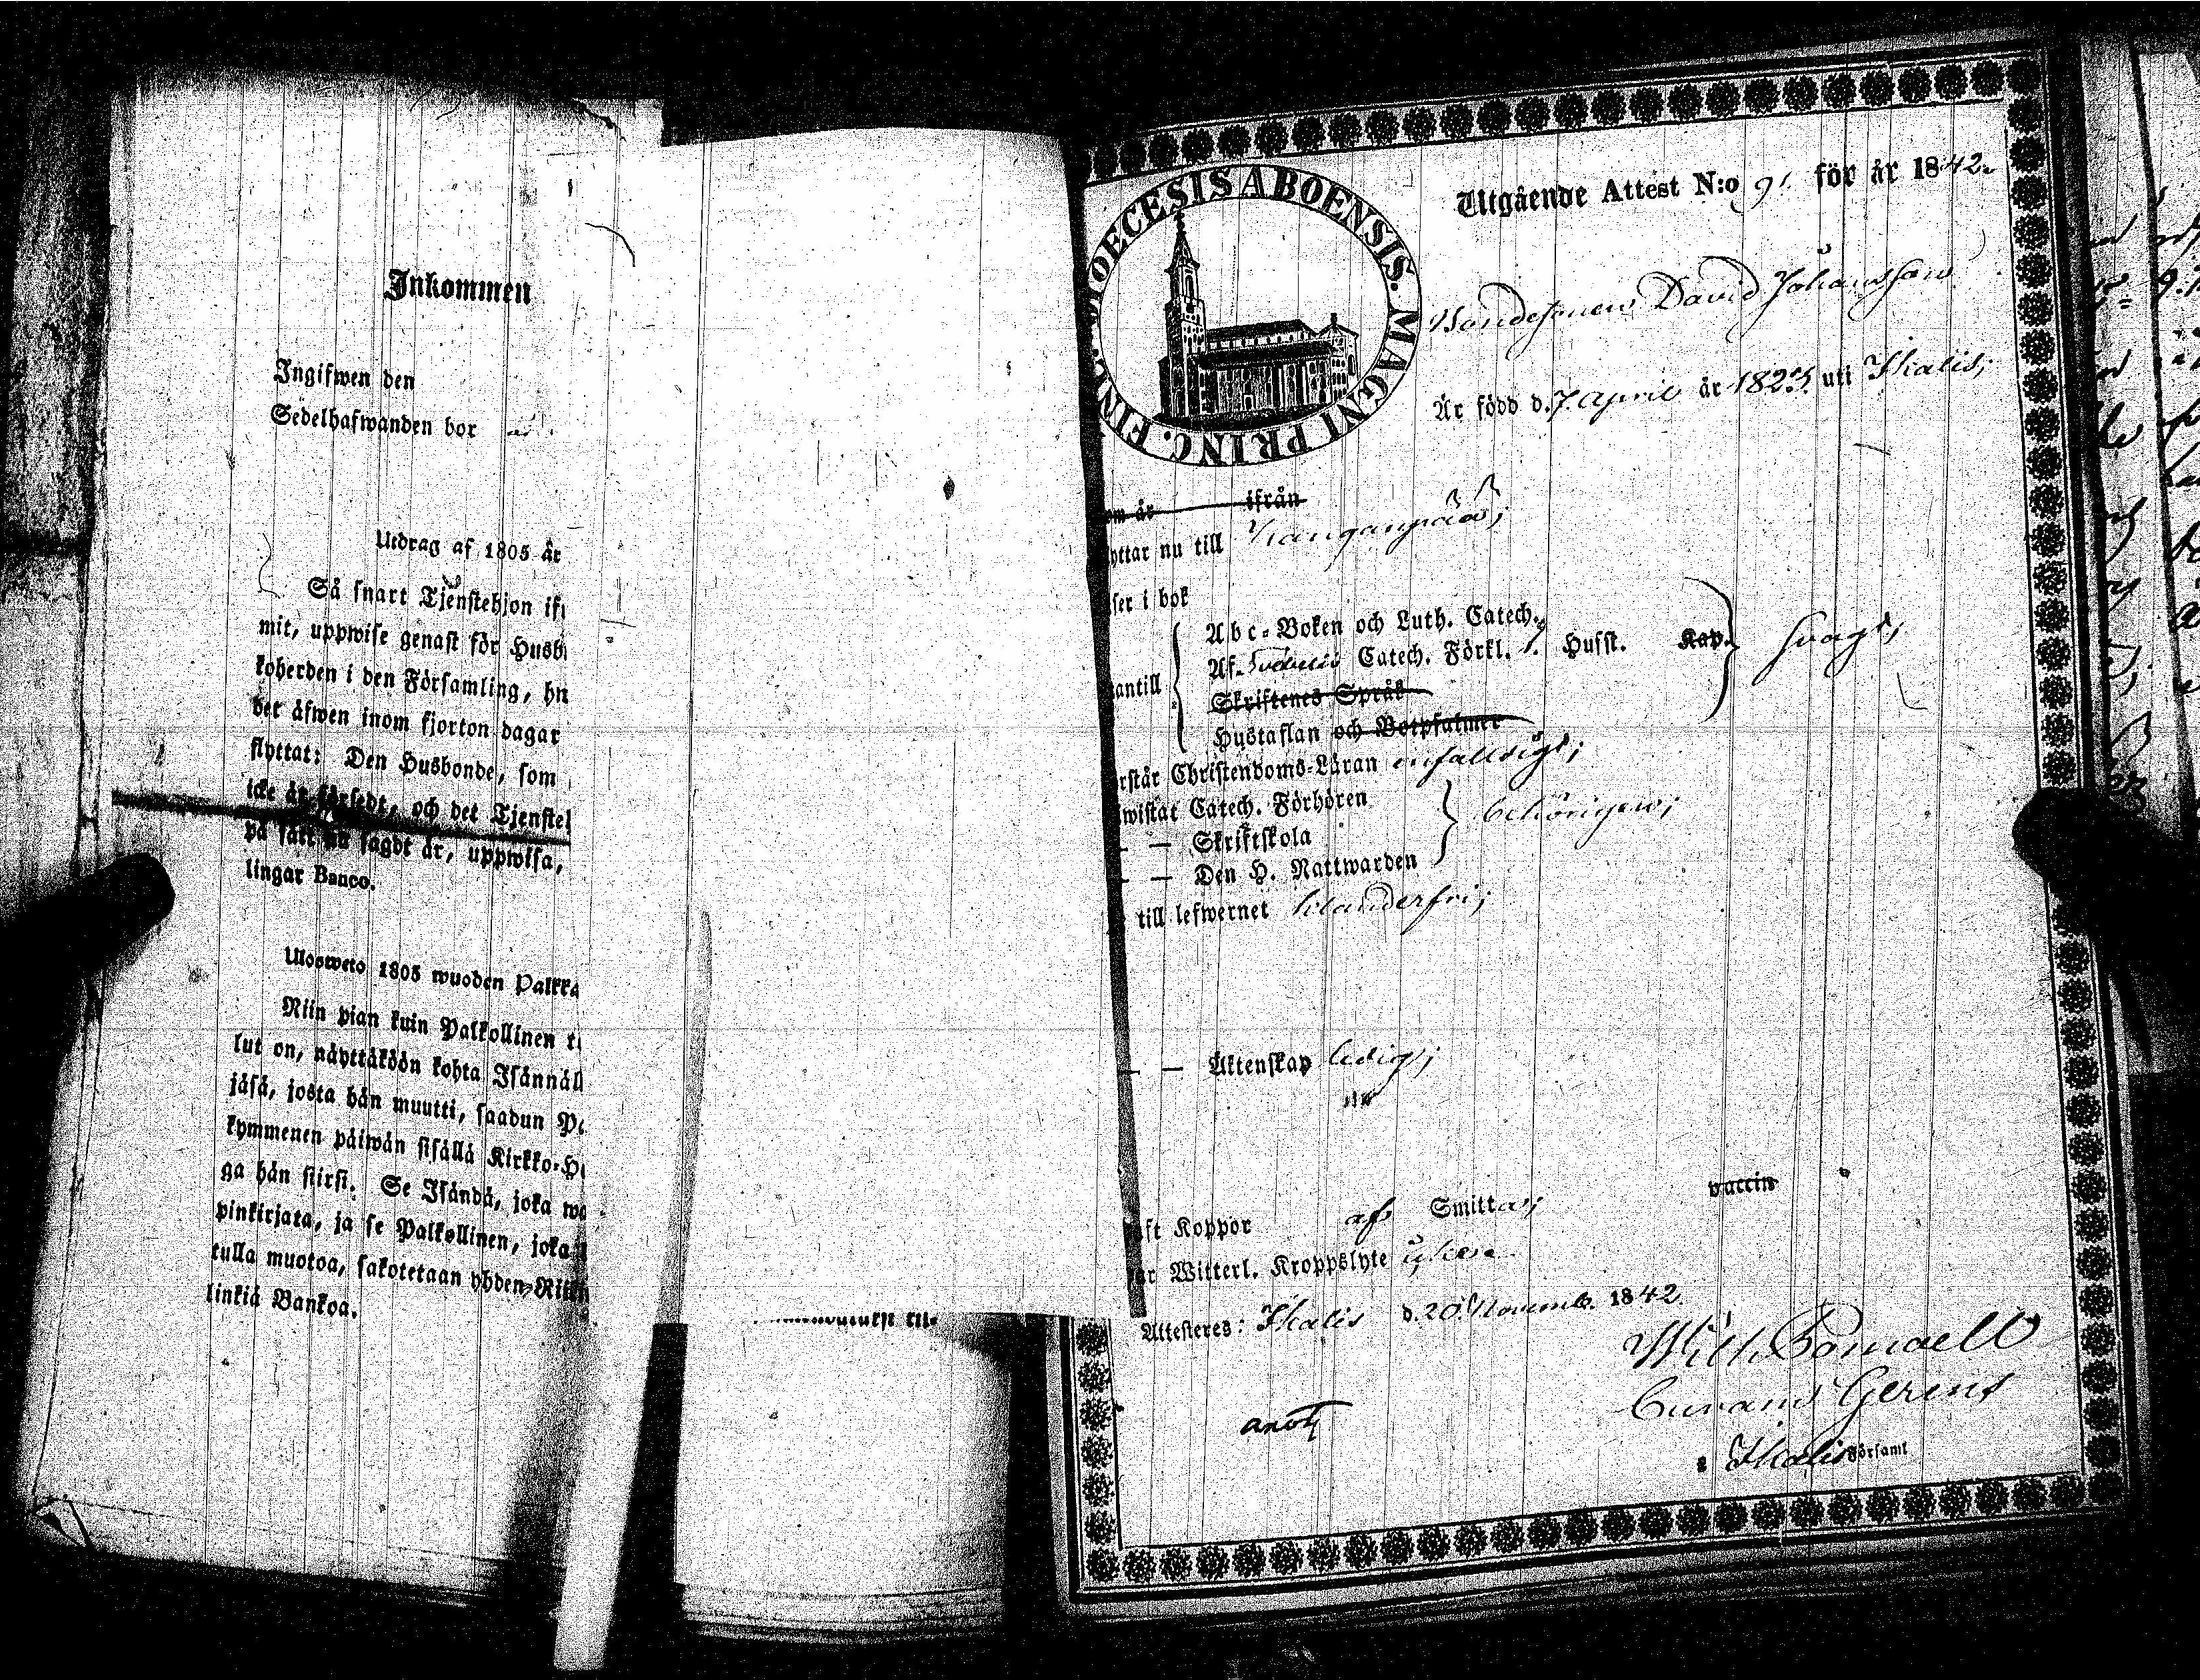 Inkommen
Ingifwen den
Sedelhafwanden bor
Utdrag af 1805 år
Så snart Tjenstehjon ifr
mit, uppwise genast för Husb
koherden i den Församling, hn
det åfwen inom fjorton dagar
flyttat: Den Husbonde, som
icke är försedt, och det Tjenstel
på sätt nu sagdt är, uppwisa,
lingar Banco.
Uloswеto 1805 wuoden Palkka
Niin pian kuin Palkollinen t
lut on, näyttäköön kohta Isännäll
jäsä, josta hän muutti, saadun P
kymmenen päiwän sisällä Kirkko-H
ga hän siirsi. Se Isändä, joka wa
pinkirjata, ja se Palkollinen, joka
tulla muotoa, sakotetaan yhden Riikin
linkiä Bankoa.
DIOECESIS ABOENSIS. MAGNI PRINC. FINL.
Utgående Attest N:o 91. för år 1842.
Bondesonen David Johansson
Är född d. 7 April år 1823 uti Ikalis;
om år ifrån
yttar nu till Kanganpää;
ser i bok
Abc-Boken och Luth. Catech.
Af Svebelii Catech. Förkl. Husst. Kap. svagt;
nantill
Skriftenes Språk
Hustaflan och Botpsalmer
rstår Christendoms-Läran enfalldigt;
wistat Catech. Förhören
— Skriftskola behörigen;
— — Den H. Nattwarden
till lefwernet klanderfri;
— — Äktenskap ledig;
aft Koppor af Smittan; vaccin
ar Witterl. Kroppslyte
Attesteres: Ikalis d. 20 Novemb. 1842.
Wilh.
Gerens
anot
i Ikalis Församl